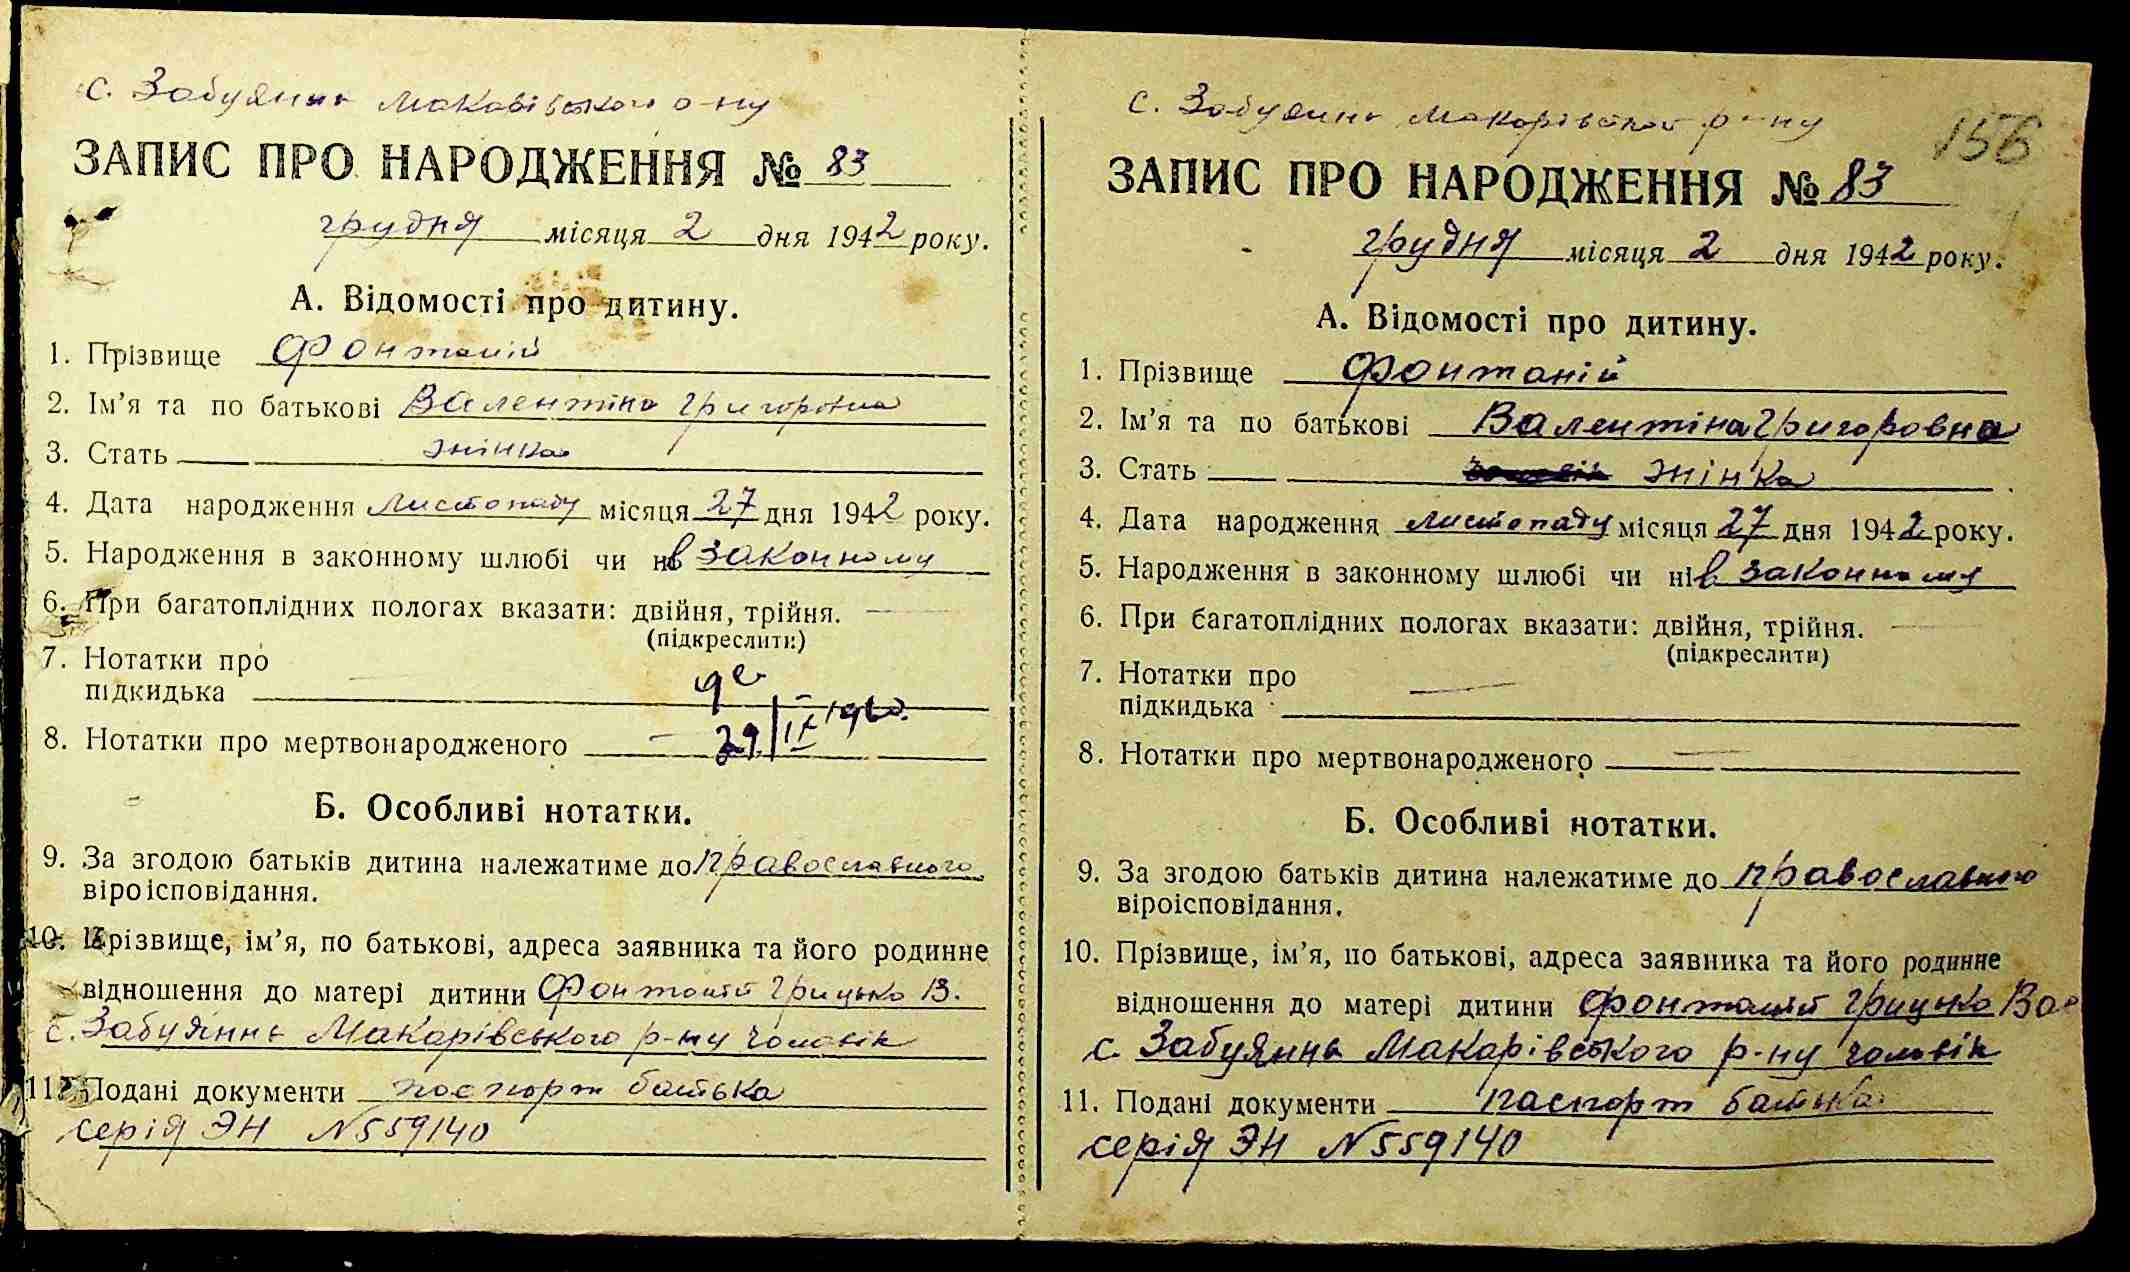 с. Забуяннь Макарівського р-ну
ЗАПИС ПРО НАРОДЖЕННЯ № 83
грудня місяця 2 дня 1942 року.
А. Відомості про дитину.
1. Прізвище Фонтаній
2. Ім’я та по батькові Валентіна Григоровна
3. Стать жінка
4. Дата народження листопаду місяця 27 дня 1942 року.
5. Народження в законному шлюбі чи ні в законному
6. При багатоплідних пологах вказати: двійня, трійня. —
(підкреслити)
7. Нотатки про
підкидька
8. Нотатки про мертвонародженого —
29/IX 1960.
Б. Особливі нотатки.
9. За згодою батьків дитина належатиме до православного
віроісповідання.
10. Прізвище, ім’я, по батькові, адреса заявника та його родинне
відношення до матері дитини Фонтаній Грицько В.
с. Забуяннь Макарівського р-ну чоловік
11. Подані документи паспорт батька
серія ЭН N 559140
с. Забуяннь Макарівського р-ну
156
ЗАПИС ПРО НАРОДЖЕННЯ № 83
грудня місяця 2 дня 1942 року.
А. Відомості про дитину.
1. Прізвище Фонтаній
2. Ім’я та по батькові Валентіна Григоровна
3. Стать жінка
4. Дата народження листопаду місяця 27 дня 1942 року.
5. Народження в законному шлюбі чи ні в законному
6. При багатоплідних пологах вказати: двійня, трійня. —
(підкреслити)
7. Нотатки про —
підкидька
8. Нотатки про мертвонародженого —
Б. Особливі нотатки.
9. За згодою батьків дитина належатиме до православного
віроісповідання.
10. Прізвище, ім’я, по батькові, адреса заявника та його родинне
відношення до матері дитини Фонтаній Грицько Вас
с. Забуяннь Макарівського р-ну чоловік
11. Подані документи паспорт батька
серія ЭН N 559140